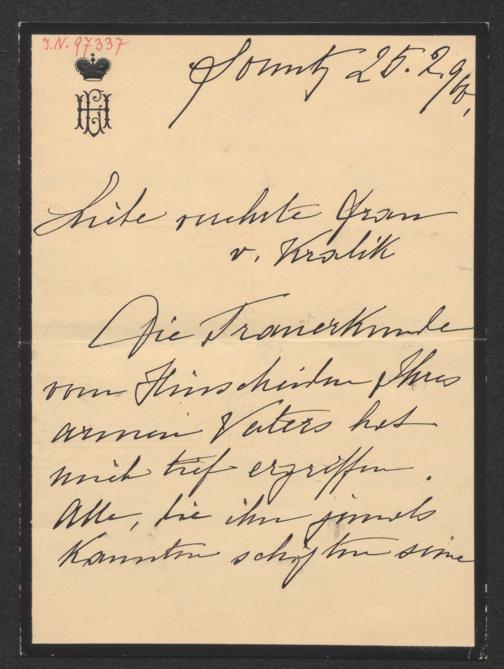 J.N. 97337
Sonntg 25.2.96,
Liebe verehrte Frau
v. Kralik
Die Trauerkunde
vom Hinscheiden Ihres
armen Vaters hat
mich tief ergriffen.
Alle, die ihn jemals
kannten schätzten seine